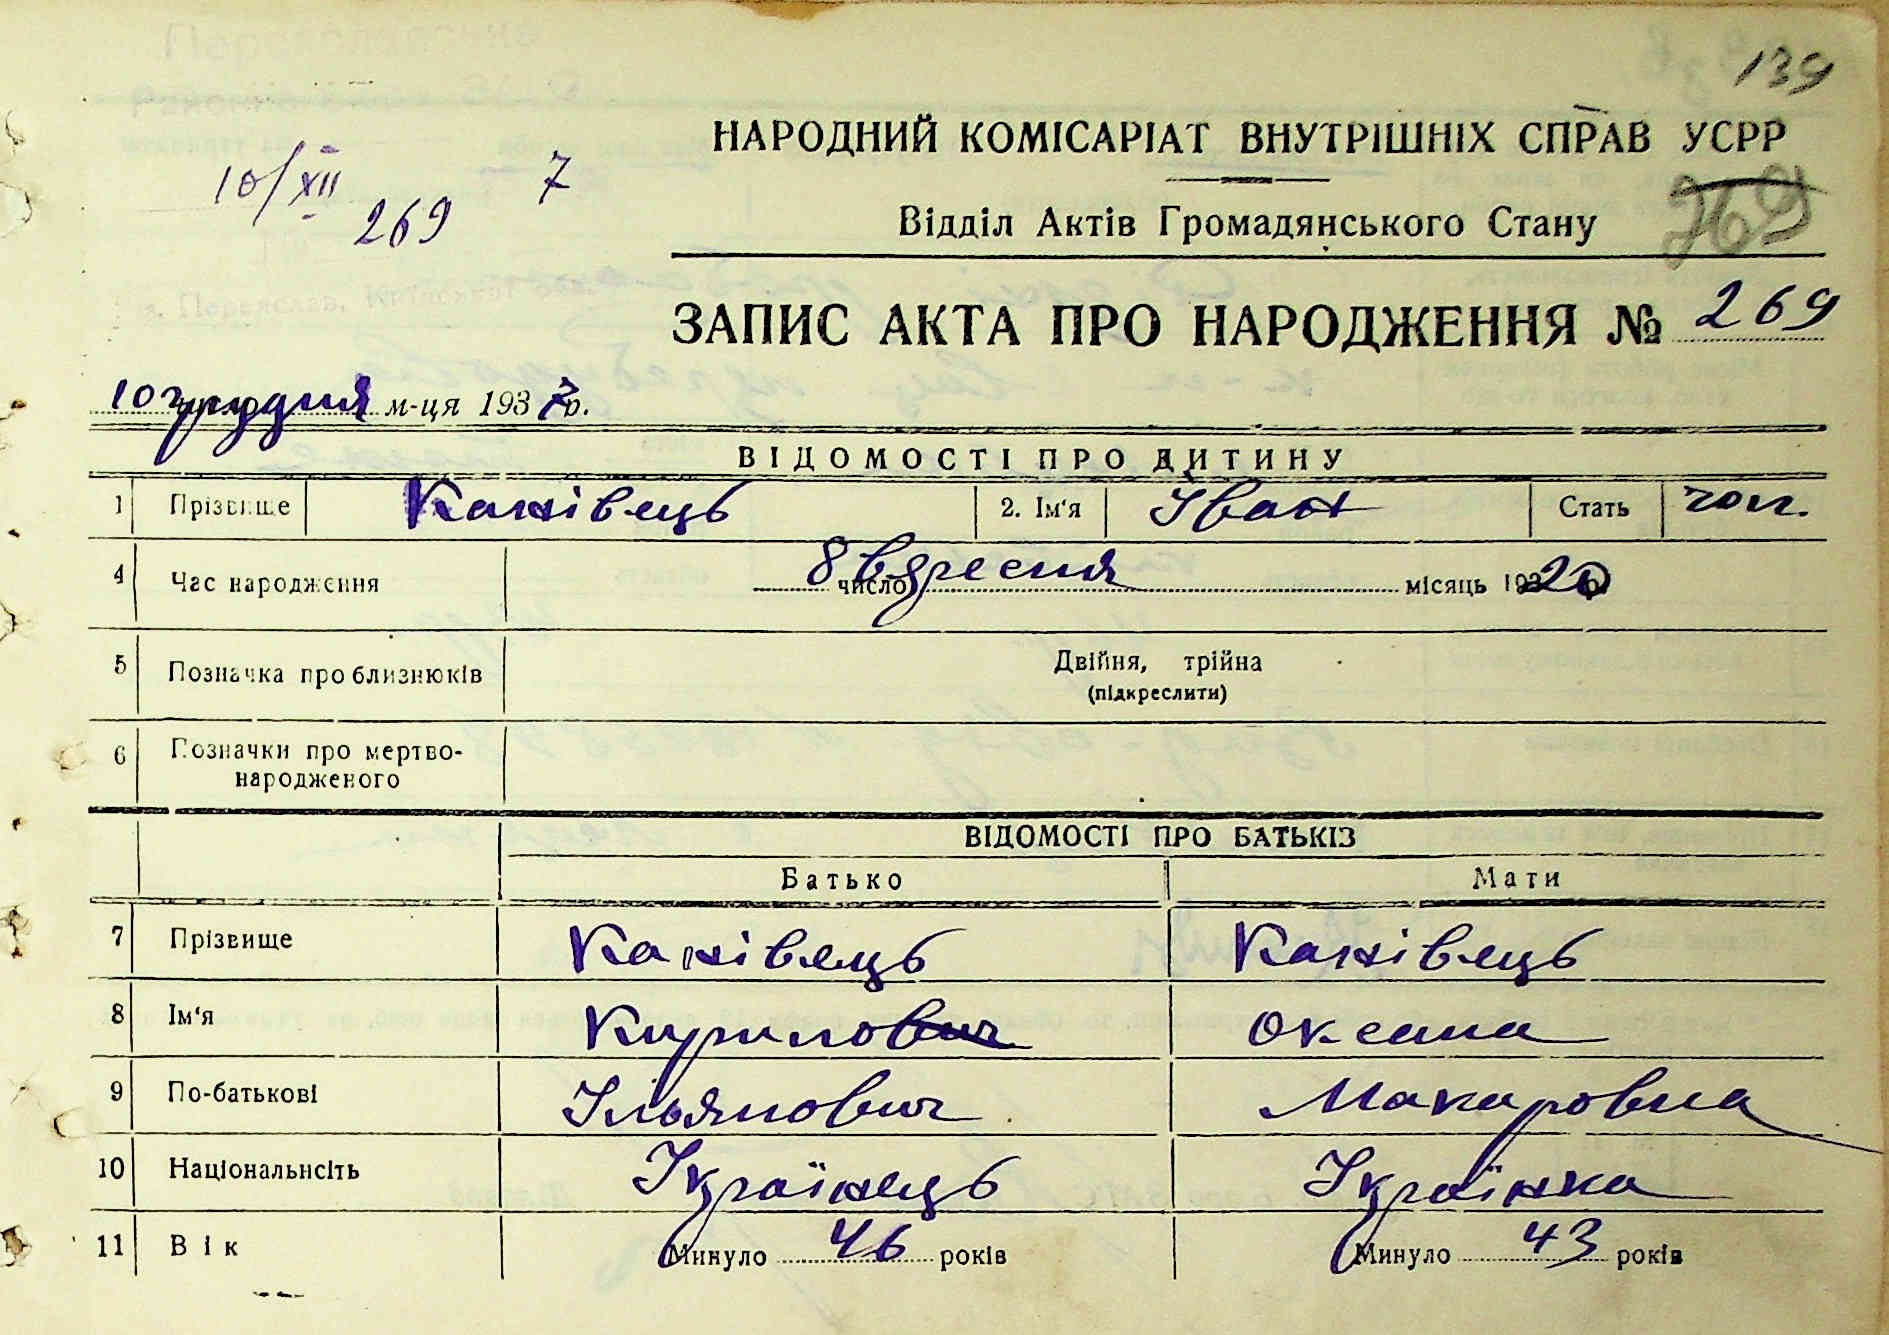 139
НАРОДНИЙ КОМІСАРІАТ ВНУТРІШНІХ СПРАВ УСРР
10/XII 7
269
Відділ Актів Громадянського Стану
ЗАПИС АКТА ПРО НАРОДЖЕННЯ № 269
10 грудня м-ця 1937 р.
ВІДОМОСТІ ПРО ДИТИНУ
1 Прізвище Канівець 2. Ім'я Іван Стать чол.
4 Час народження 8 число вересня місяць 1920 р.
5 Позначка про близнюків Двійня, трійна
(підкреслити)
6 Позначки про мертво-
народженого
ВІДОМОСТІ ПРО БАТЬКІВ
Батько Мати
7 Прізвище Канівець Канівець
8 Ім'я Кирило Оксана
9 По-батькові Ільянович Макаровна
10 Національнсіть Українець Українка
11 Вік Минуло 46 років Минуло 43 років